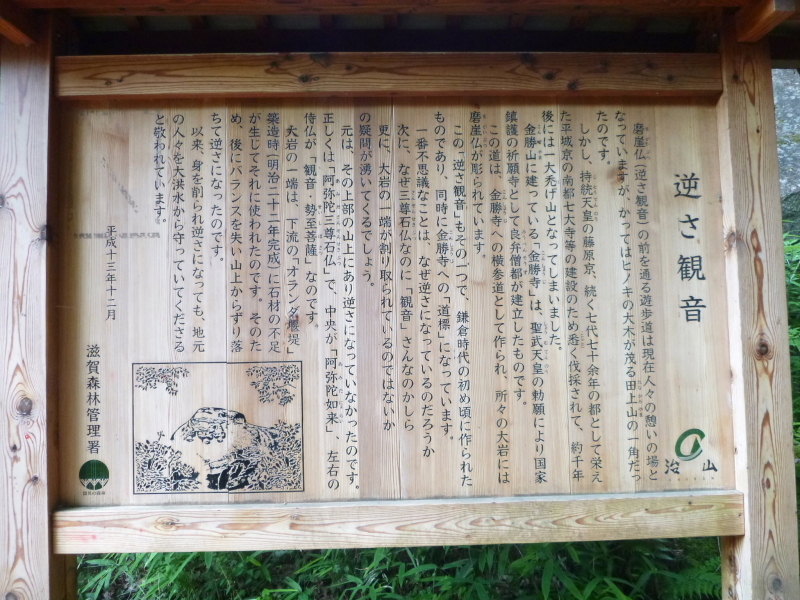 逆さ観音
磨崖仏（逆さ観音）の前を通る遊歩道は現在人々の憩いの場と
なっていますが、かつてはヒノキの大木が茂る田上山の一角だっ
たのです。
しかし、持統天皇の藤原京、続く七代七十余年の都として栄え
た平城京の南都七大寺等の建設のため悉く伐採されて、約千年
後には一大禿げ山となってしまいました。
金勝山に建っている「金勝寺」は、聖武天皇の勅願により国家
鎮護の祈願寺として良弁僧都が建立したものです。
この道は、金勝寺への横参道として作られ、所々の大岩には
磨崖仏が彫られています。
この「逆さ観音」もその一つで、鎌倉時代の初め頃に作られた
ものであり、同時に金勝寺への「道標」になっています。
一番不思議なことは、なぜ逆さになっているのだろうか
次に、なぜ三尊石仏なのに「観音」さんなのかしら
更に、大岩の一端が割り取られているのではないか
の疑問が湧いてくるでしょう。
元は、その上部の山上にあり逆さになっていなかったのです。
正しくは「阿弥陀三尊石仏」で、中央が「阿弥陀如来」、左右の
侍仏が「観音 勢至菩薩」なのです。
大岩の一端は、下流の「オランダ堰堤」
築造時（明治二十二年完成）に石材の不足
が生じてそれに使われたのです。そのた
め、後にバランスを失い山上からずり落
ちて逆さになったのです。
以来、身を削られ逆さになっても、地元
の人々を大洪水から守っていてくださる
と敬われています。
平成十三年十二月
滋賀森林管理署
治山